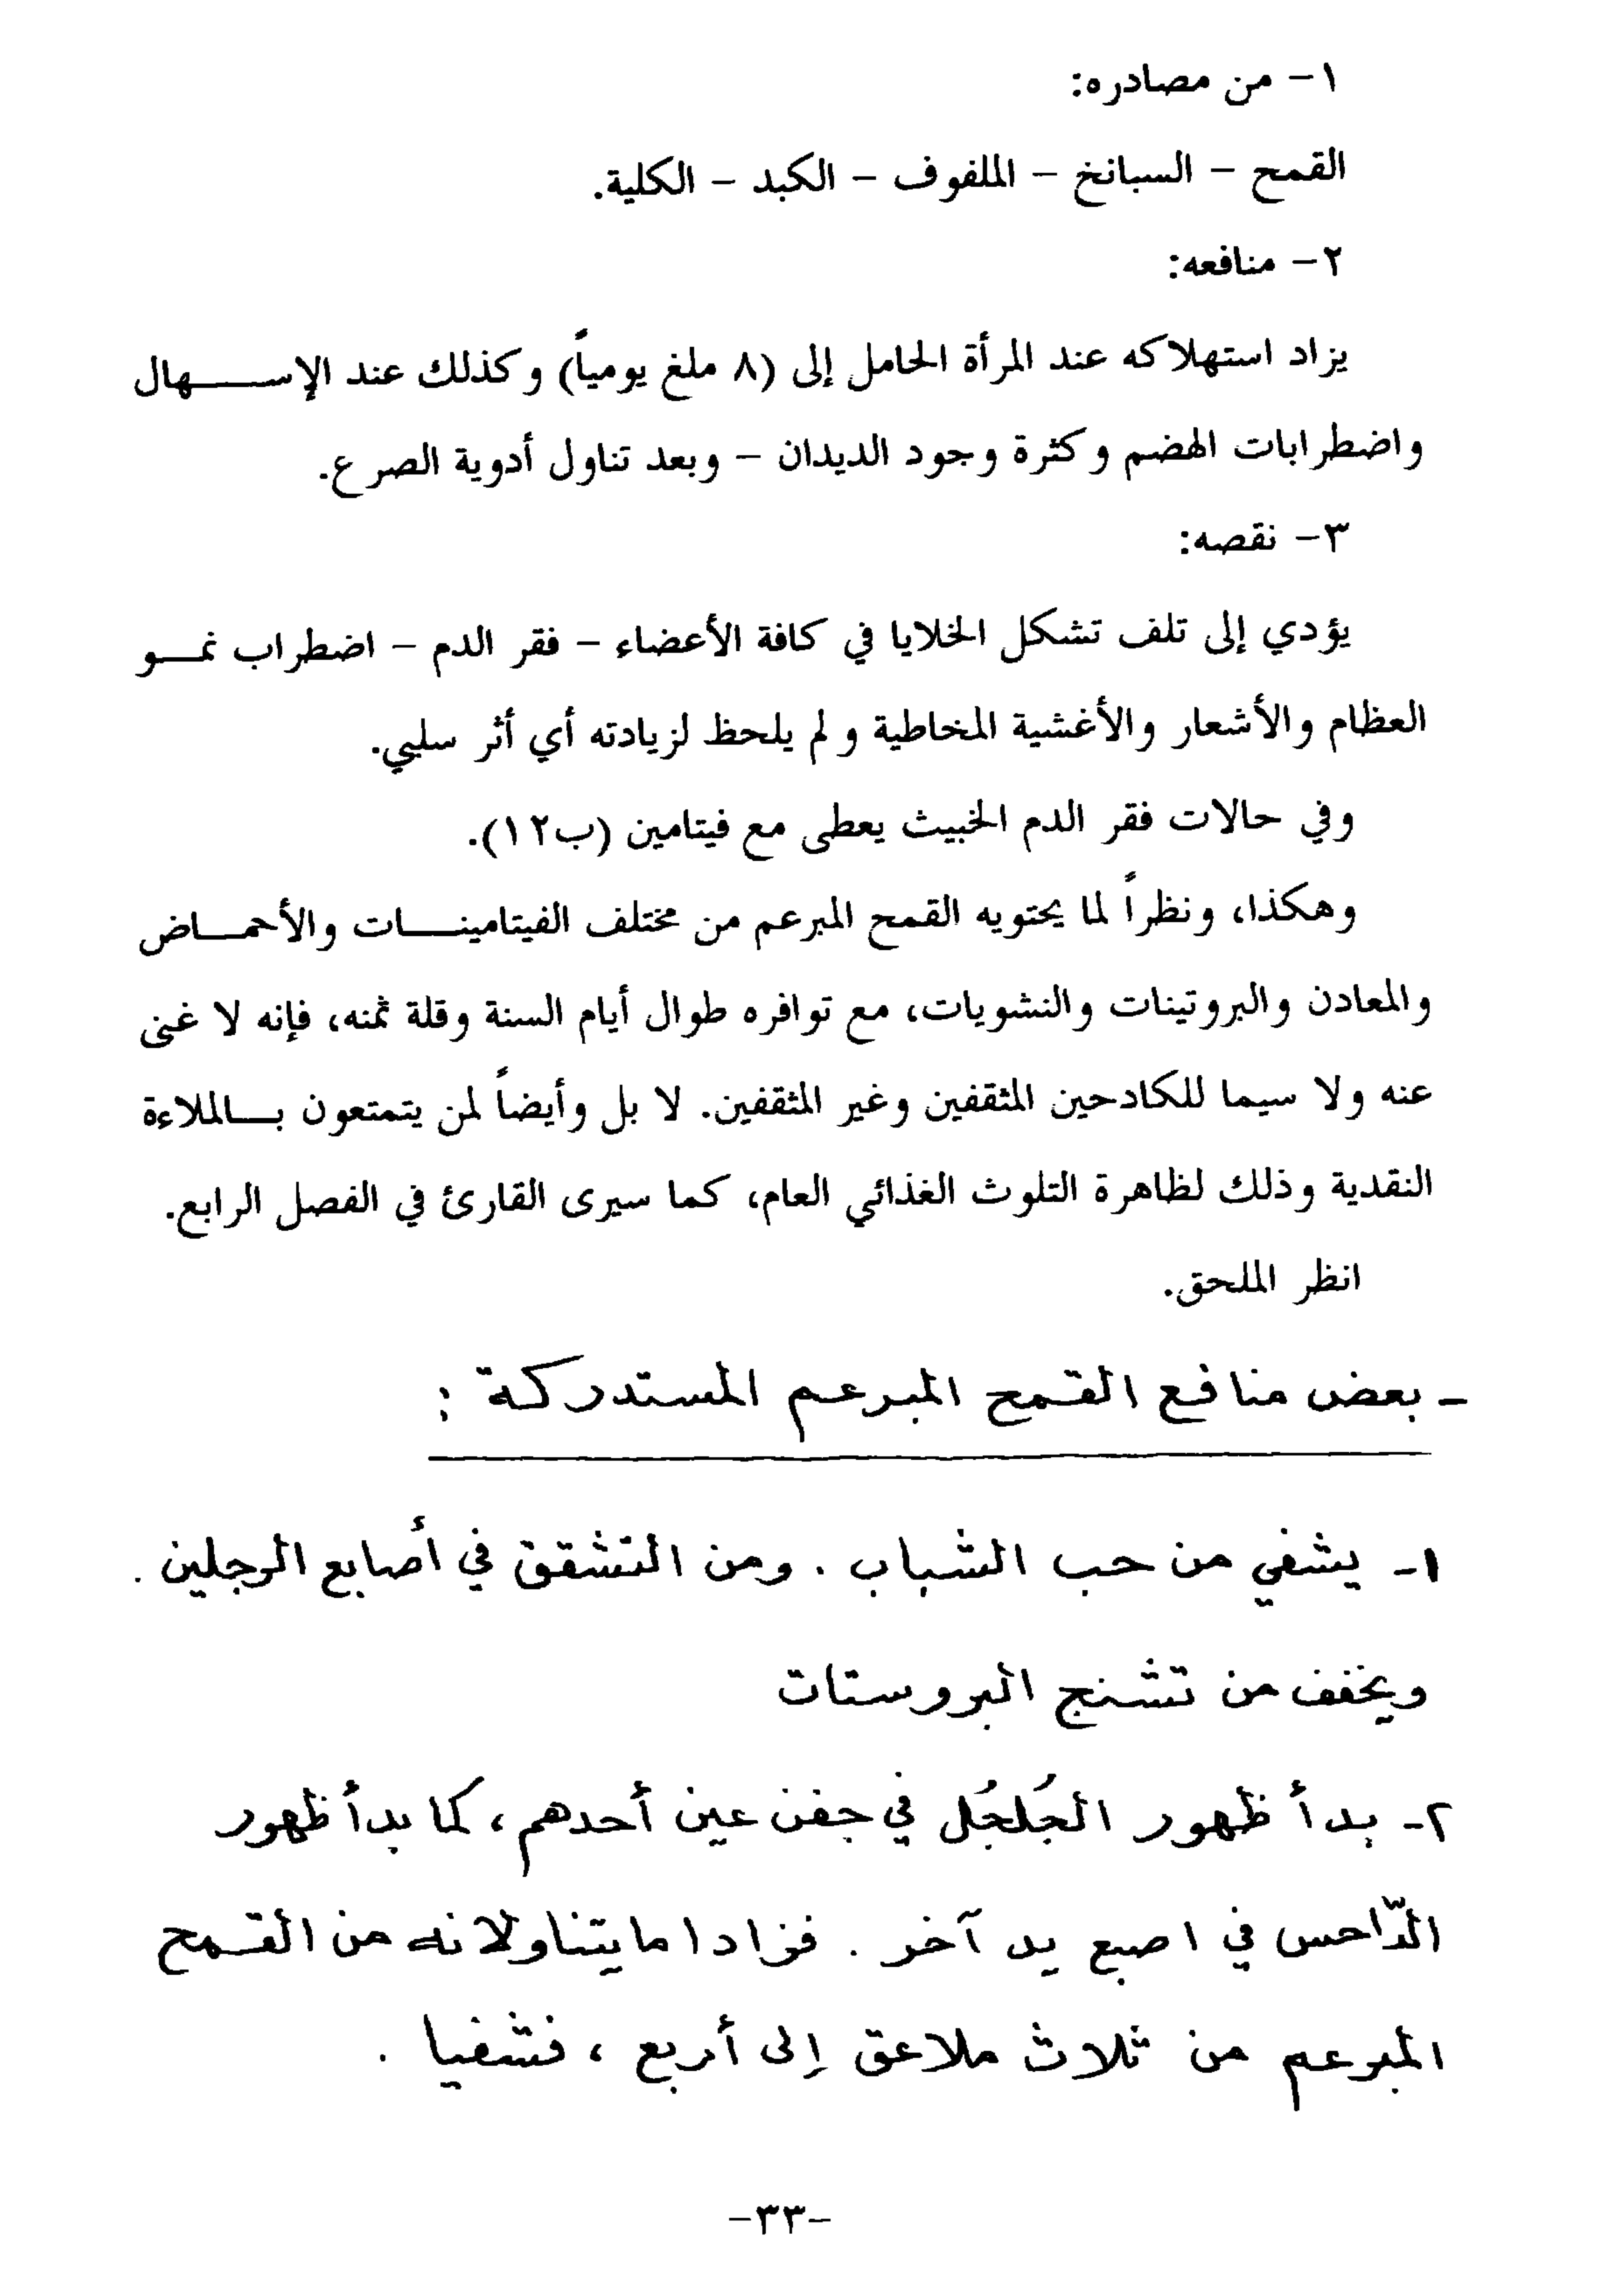 ١- من مصادره:
القمح - السبانخ - الملفوف - الكبد - الكلية.
٢- منافعه:
يزاد استهلاكه عند المرأة الحامل إلى (٨ ملغ يومياً) وكذلك عند الإســـــهال
واضطرابات الهضم وكثرة وجود الديدان - وبعد تناول أدوية الصرع.
٣- نقصه:
يؤدي إلى تلف تشكل الخلايا في كافة الأعضاء - فقر الدم - اضطراب نمـــو
العظام والأشعار والأغشية المخاطية ولم يلحظ لزيادته أي أثر سلبي.
وفي حالات فقر الدم الخبيث يعطى مع فيتامين (ب١٢).
وهكذا، ونظراً لما يحتويه القمح المبرعم من مختلف الفيتامينـــات والأحمـــاض
والمعادن والبروتينات والنشويات، مع توافره طوال أيام السنة وقلة ثمنه، فإنه لا غنى
عنه ولا سيما للكادحين المثقفين وغير المثقفين. لا بل وأيضاً لمن يتمتعون بـــالملاءة
النقدية وذلك لظاهرة التلوث الغذائي العام، كما سيرى القارئ في الفصل الرابع.
انظر الملحق.
- بعض منافع القمح المبرعم المستدركة :
١- يشفي من حب الشباب . ومن التشقق في أصابع الرجلين .
ويخفف من تشنج البروستات
٢- بدأ ظهور الجُلجُل في جفن عين أحدهم، كما بدأ ظهور
الدّاحس في اصبع يد آخر . فزادا ما يتناولانه من القمح
المبرعم من ثلاث ملاعق إلى أربع ، فشفيا .
-٣٣-